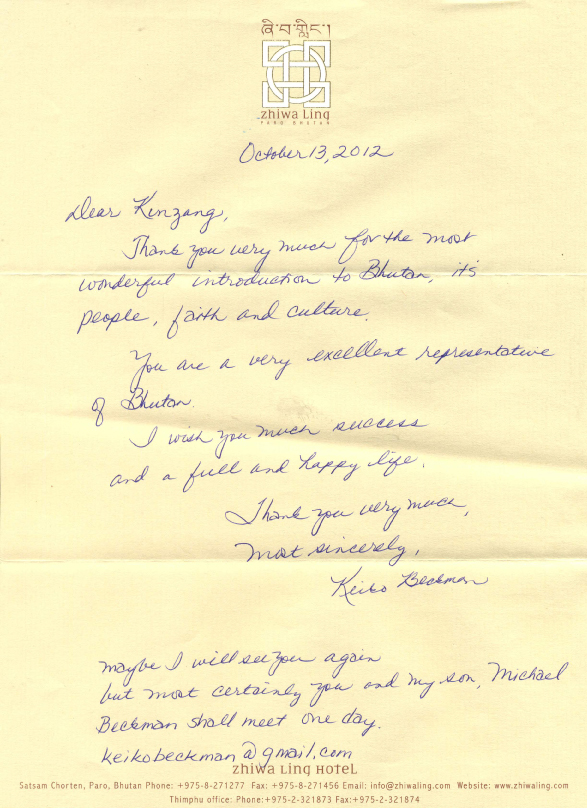 ཞི་བ་གླིང་།
zhiwa Ling
PARO BHUTAN
October 13, 2012
Dear Kinzang,
Thank you very much for the most
wonderful introduction to Bhutan, it's
people, faith and culture.
You are a very excellent representative
of Bhutan.
I wish you much success
and a full and happy life.
Thank you very much,
most sincerely,
Keiko Beckman
maybe I will see you again
but most certainly you and my son, Michael
Beckman shall meet one day.
keikobeckman@gmail.com
zhiwa Ling HoteL
Satsam Chorten, Paro, Bhutan Phone: +975-8-271277 Fax: +975-8-271456 Email: info@zhiwaling.com Website: www.zhiwaling.com
Thimphu office: Phone:+975-2-321873 Fax:+975-2-321874